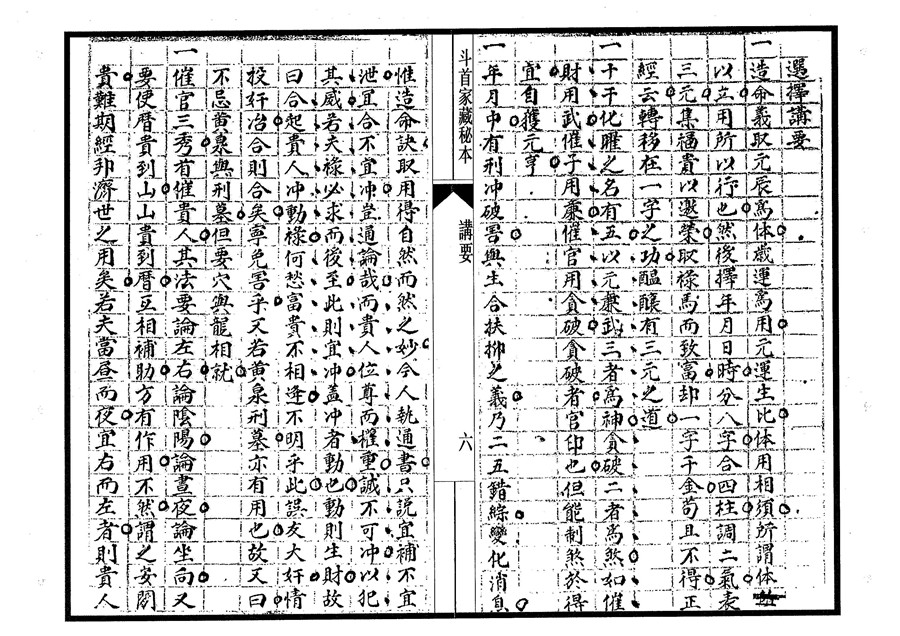 選擇講要
一造命義取元辰為体歲運為用元運生比体用相須所謂体
以立用所以行也然後擇年月日時分八字合四柱調二氣表
三元集福貴以邀榮取祿馬而致富却一字千金苟且不得正
經云轉移在一字之功醞釀有三元之道
一十干化曜之名有五以元兼武三者為神貪破二者為煞如催
財用武催子用兼催官用貪破貪破者官印也但能制煞於得
宜自獲元亨
一年月中有刑冲破害與生合扶抑之義乃二五錯綜變化消息
斗首家藏秘本
講要
六
惟造命訣取用得自然而然之妙今人執通書只説宜補不宜
泄宜合不宜冲豈通論哉而貴人位尊而權重誠不可冲以犯
其威若夫祿必求而後至此則宜冲盖冲者動也動則生財故
曰合起貴人冲動祿何愁富貴不相逢不明乎此誤友大奸情
投奸冶合則合矣寧免害乎又若黄泉刑墓亦有用也故又曰
不忌黄泉與刑墓但要穴與龍相就
一催官三秀有催貴人其法要論左右論陰陽論晝夜論坐向又
要使曆貴到山山貴到曆互相補助方有作用不然謂之安閑
貴難期經邦濟世之用矣若夫當昼而夜宜右而左者則貴人